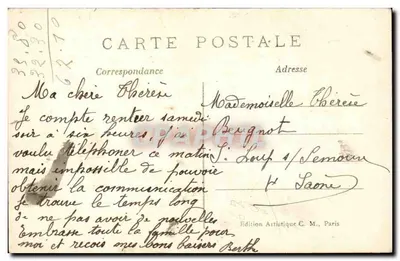 33.80
32.30
62.10
CARTE POSTALE
Correspondance
Adresse
Ma chère Thérèse
Je compte rentrer samedi
soir à six heures, j'ai
voulu téléphoner ce matin
mais impossible de pouvoir
obtenir la communication
je trouve le temps long
de ne pas avoir de nouvelles
Embrasse toute la famille pour
moi et recois mes bons baisers Berthe
Mademoiselle Thérèse
Beugnot
St Loup s/ Semouse
Hte Saône
Edition Artistique C. M., Paris